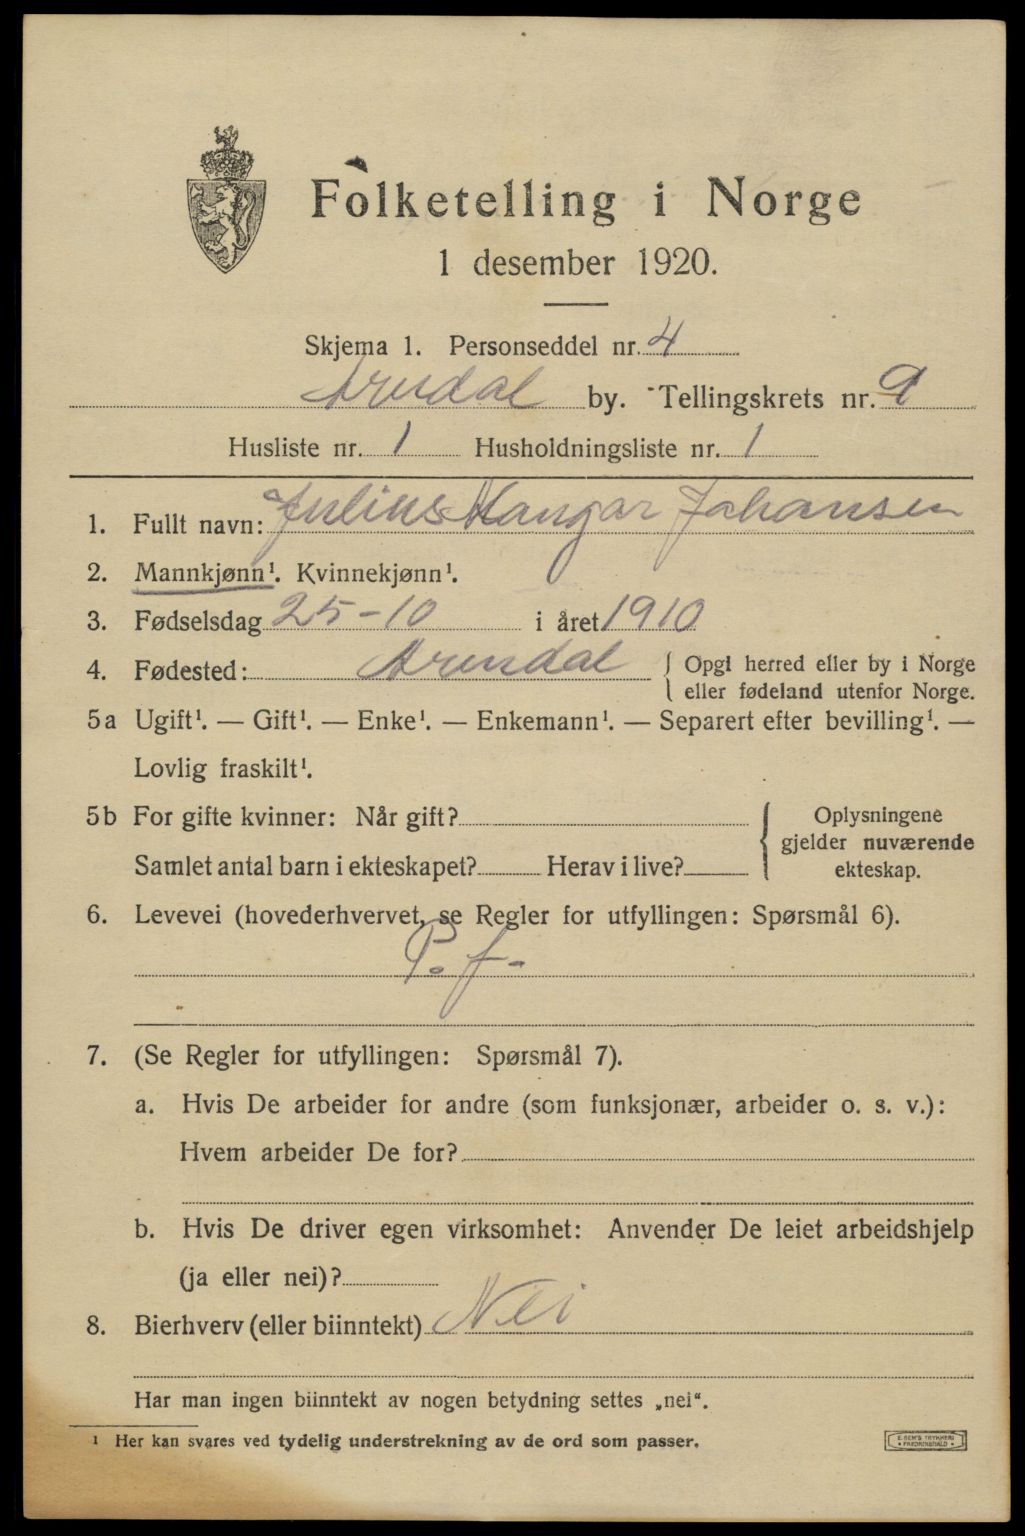 Folketelling i Norge
1 desember 1920.
Skjema 1. Personseddel nr. 4
Arendal by. Tellingskrets nr. 9
Husliste nr. 1 Husholdningsliste nr. 1
1. Fullt navn: Julius Johansen
2. Mannkjønn¹. Kvinnekjønn¹.
3. Fødselsdag 25-10 i året 1910
4. Fødested: Arendal { Opgi herred eller by i Norge
eller fødeland utenfor Norge.
5a Ugift¹. — Gift¹. — Enke¹. — Enkemann¹. — Separert efter bevilling¹. —
Lovlig fraskilt¹.
5b For gifte kvinner: Når gift? { Oplysningene
gjelder nuværende
Samlet antal barn i ekteskapet? Herav i live? ekteskap.
6. Levevei (hovederhvervet, se Regler for utfyllingen: Spørsmål 6).
P. f.
7. (Se Regler for utfyllingen: Spørsmål 7).
a. Hvis De arbeider for andre (som funksjonær, arbeider o. s. v.):
Hvem arbeider De for?
b. Hvis De driver egen virksomhet: Anvender De leiet arbeidshjelp
(ja eller nei)?
8. Bierhverv (eller biinntekt) Nei
Har man ingen biinntekt av nogen betydning settes „nei“.
¹ Her kan svares ved tydelig understrekning av de ord som passer.
E. SEM'S TRYKKERI
• FREDRIKSHALD •